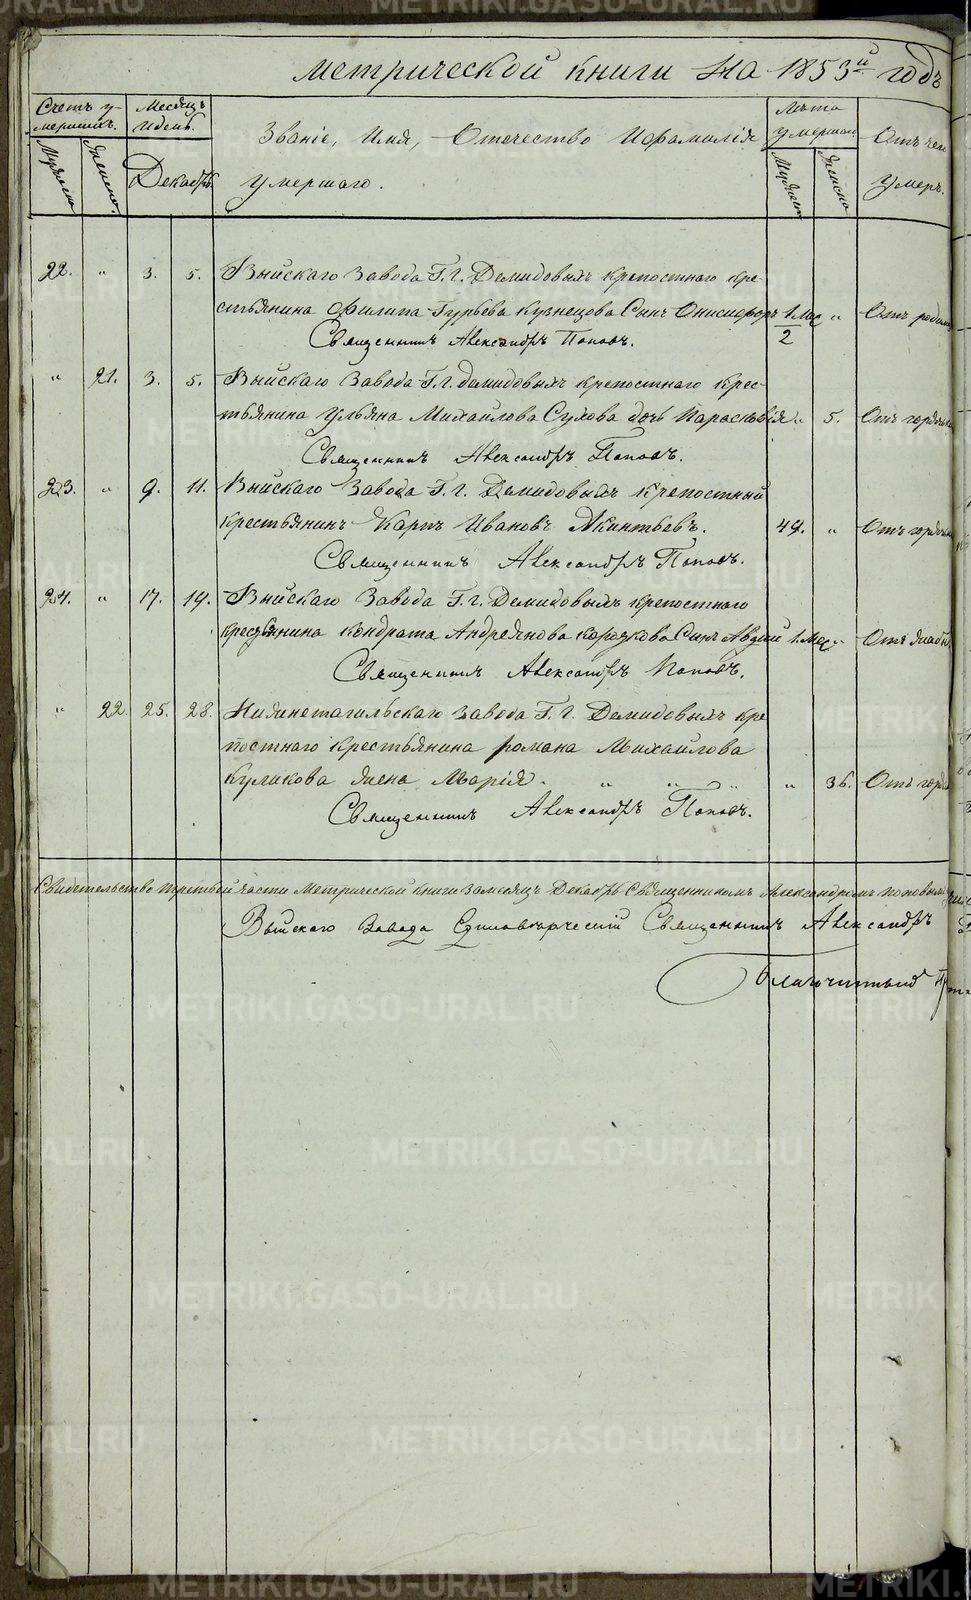 метрической книги на 1853й годъ
Счетъ у-
мершихъ.
Месяцъ
и день.
Званіе, Имя, Отечество и фамилія
умершаго.
Лѣта
умершаго
Отъ чего
умеръ.
Мужеска
Женска.
Декабрь.
Мужеска
Женска
22. " 3. 5. Выйскаго Завода Г.г. Демидовыхъ крепостнаго кре-
стьянина Филипа Гурьева Кузнецова Сынъ Онисифоръ 1/2 Мес " Отъ родимца
Священникъ Александръ Поповъ.
" 21. 3. 5. Выйскаго Завода Г.г. Демидовыхъ крепостнаго крес-
тьянина Ульяна Михайлова Сухова дочь Парасковія " 5. Отъ горячки
Священникъ Александръ Поповъ.
223. " 9. 11. Выйскаго Завода Г.г. Демидовыхъ крепостный
крестьянинъ Карпъ Ивановъ Акинтьевъ. 49. " Отъ горячки
Священникъ Александръ Поповъ.
24. " 17. 19. Выйскаго Завода Г.г. Демидовыхъ крепостнаго
крестьянина Кондрата Андреянова Сынъ Авдий 1. Мес " Отъ жабы
Священникъ Александръ Поповъ.
" 22. 25. 28. Нижнетагильскаго Завода Г.г. Демидовыхъ кре
постнаго крестьянина Романа Михайлова
Куликова жена Марія. " " " " 36. Отъ горя
Священникъ Александръ Поповъ.
Свидетельство третьей части Метрической книги За месяцъ Декабрь Священникомъ Александромъ Поповымъ
Выйскаго Завода Единоверческій Священникъ Александръ
Благочинный
METRIKI.GASO-URAL.RU